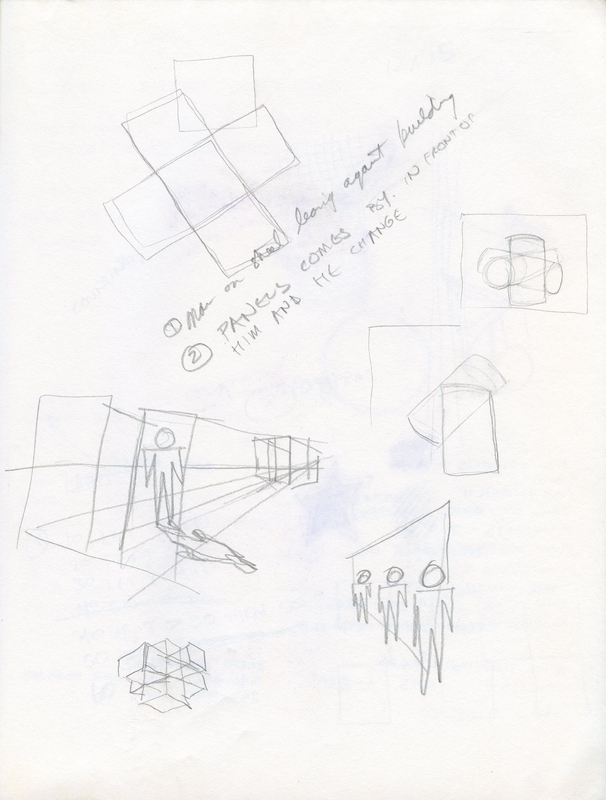 ① Man on street leaning against building
② PANELS COMES BY. IN FRONT OF
HIM AND HE CHANGE